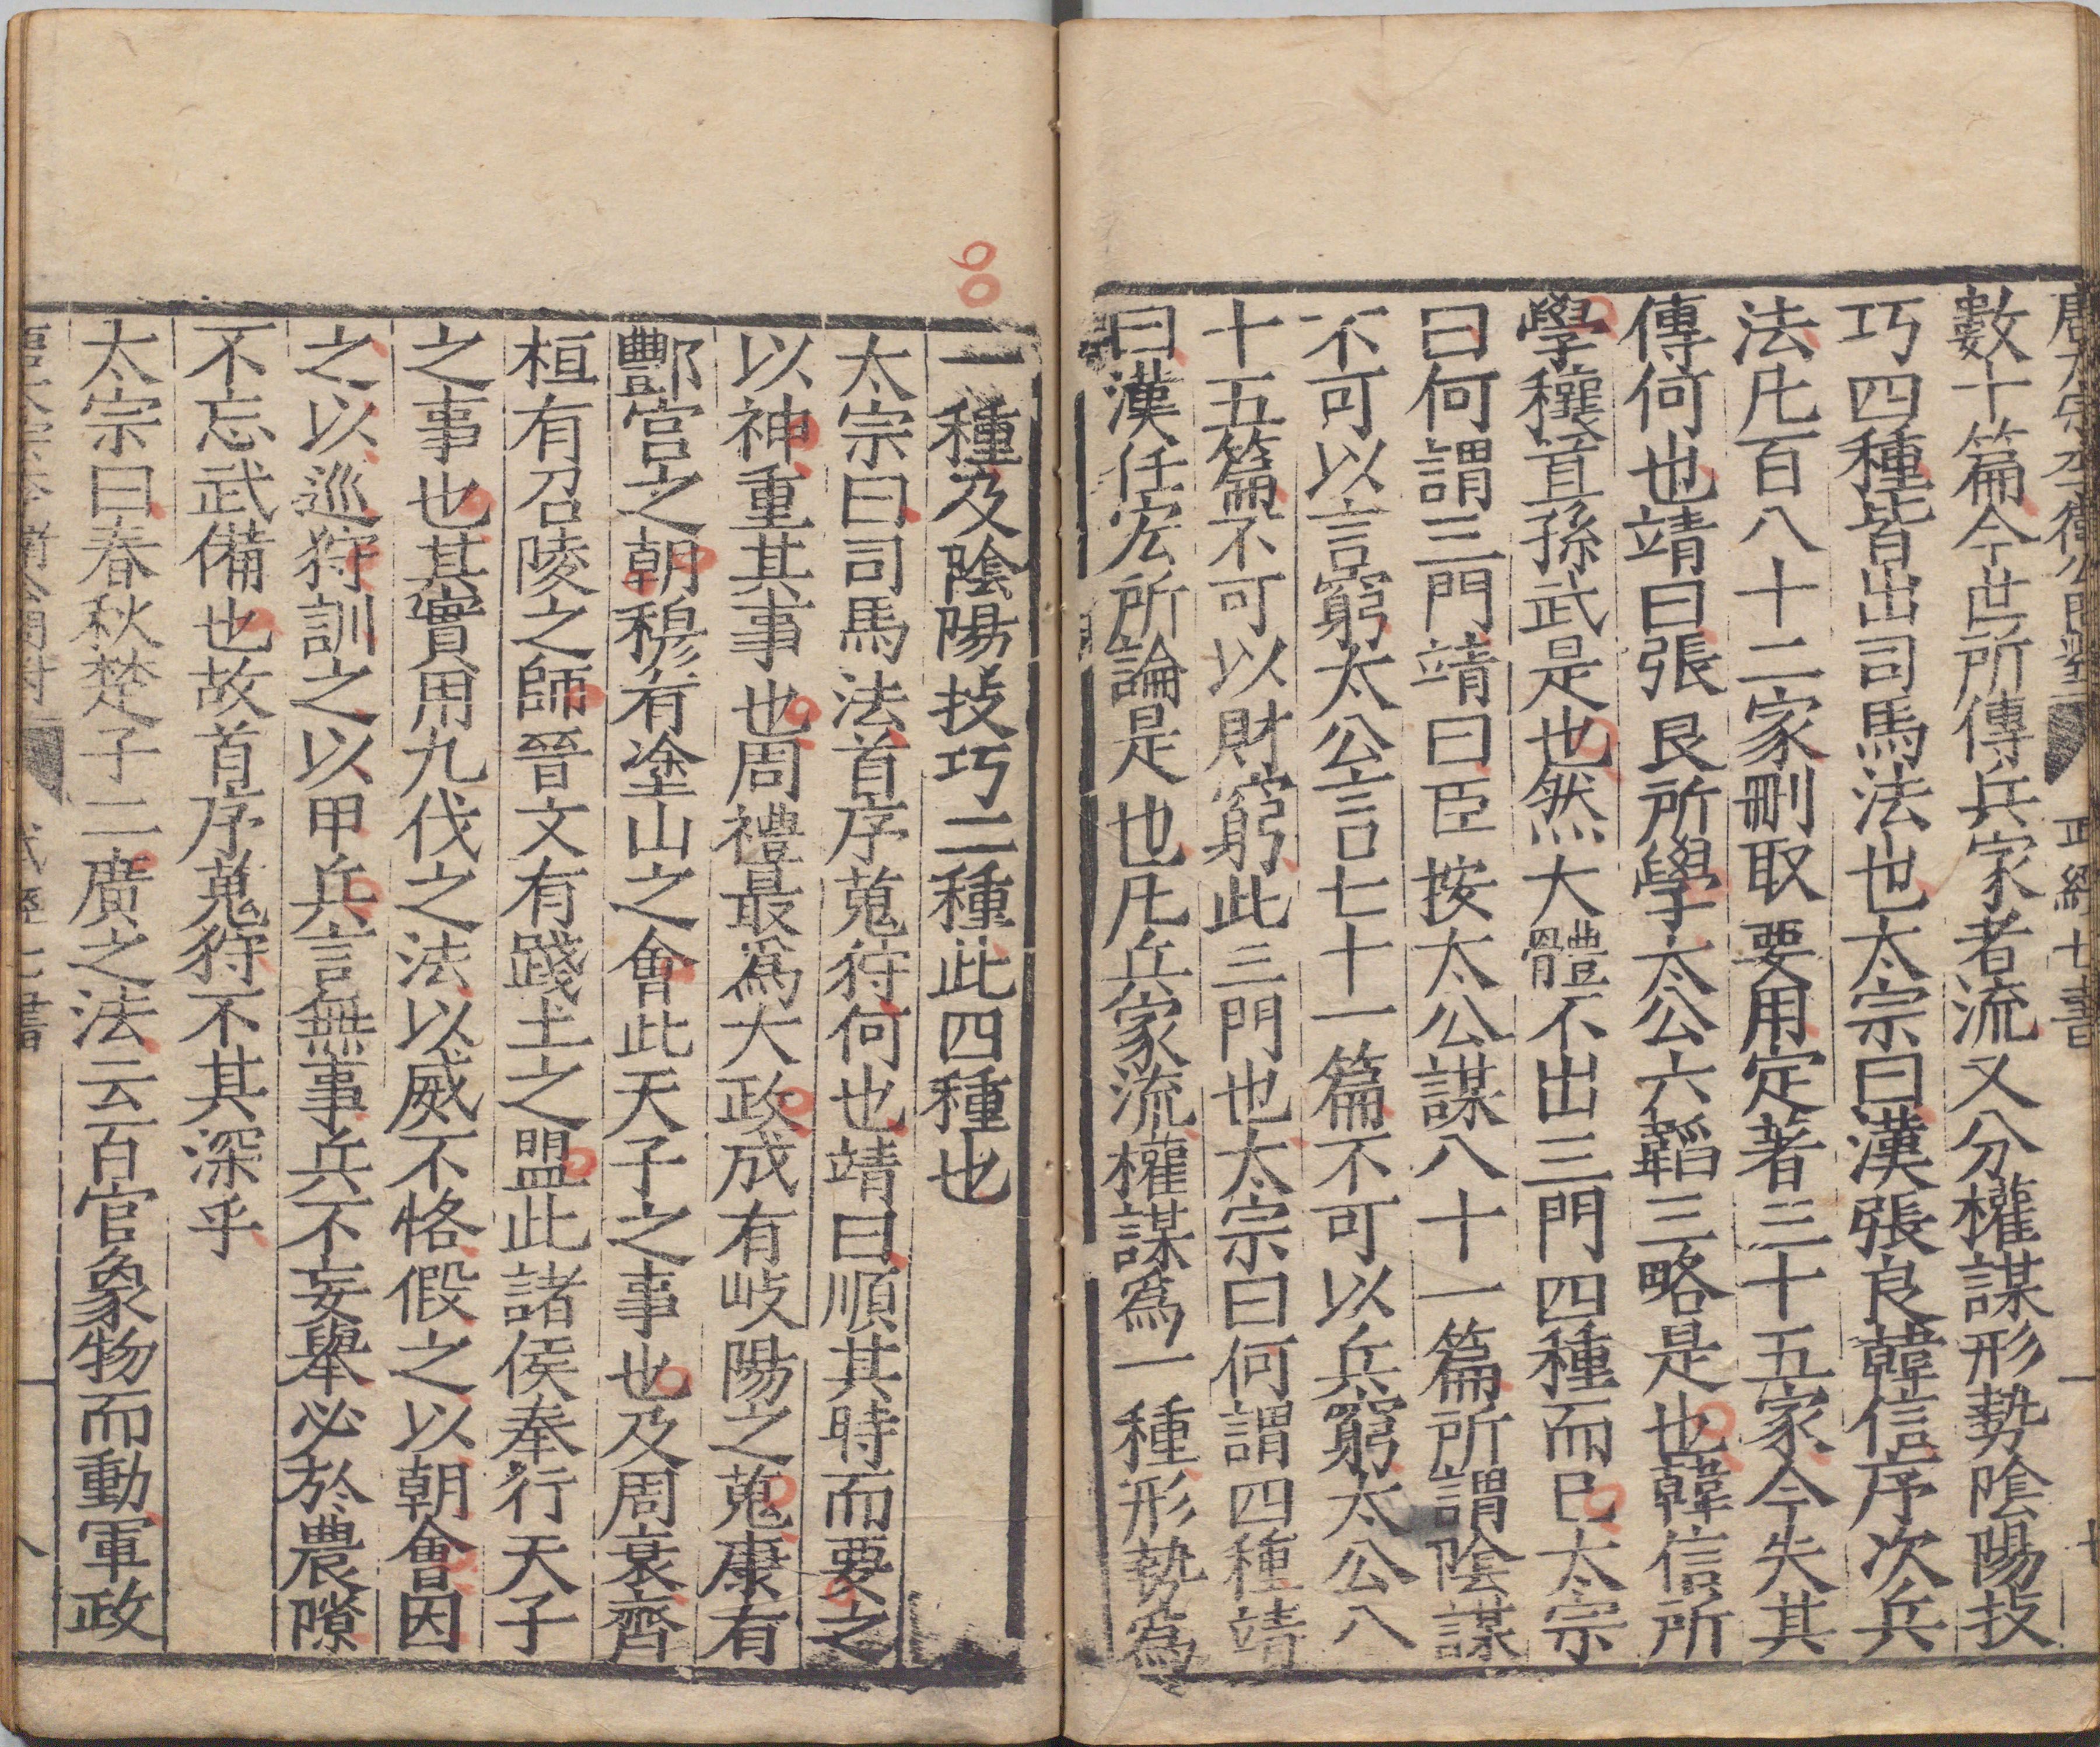 數十篇今世所傳兵家者流又分權謀形勢陰陽技
巧四種皆出司馬法也太宗曰漢張良韓信序次兵
法凡百八十二家刪取要用定著三十五家今失其
傳何也靖曰張良所學太公六韜三略是也韓信所
學穰苴孫武是也然大體不出三門四種而已太宗
曰何謂三門靖曰臣按太公謀八十一篇所謂陰謀
不可以言窮太公言七十一篇不可以兵窮太公八
十五篇不可以財窮此三門也太宗曰何謂四種靖
曰漢任宏所論是也凡兵家流權謀爲一種形勢爲
一種及陰陽技巧二種此四種也
太宗曰司馬法首序蒐狩何也靖曰順其時而要之
以神重其事也周禮最爲大政成有岐陽之蒐康有
酆宮之朝穆有塗山之會此天子之事也及周衰齊
桓有召陵之師晉文有踐土之盟此諸侯奉行天子
之事也其實用九伐之法以威不恪假之以朝會因
之以巡狩訓之以甲兵言無事兵不妄舉必於農隙
不忘武備也故首序蒐狩不其深乎
太宗曰春秋楚子二廣之法云百官象物而動軍政